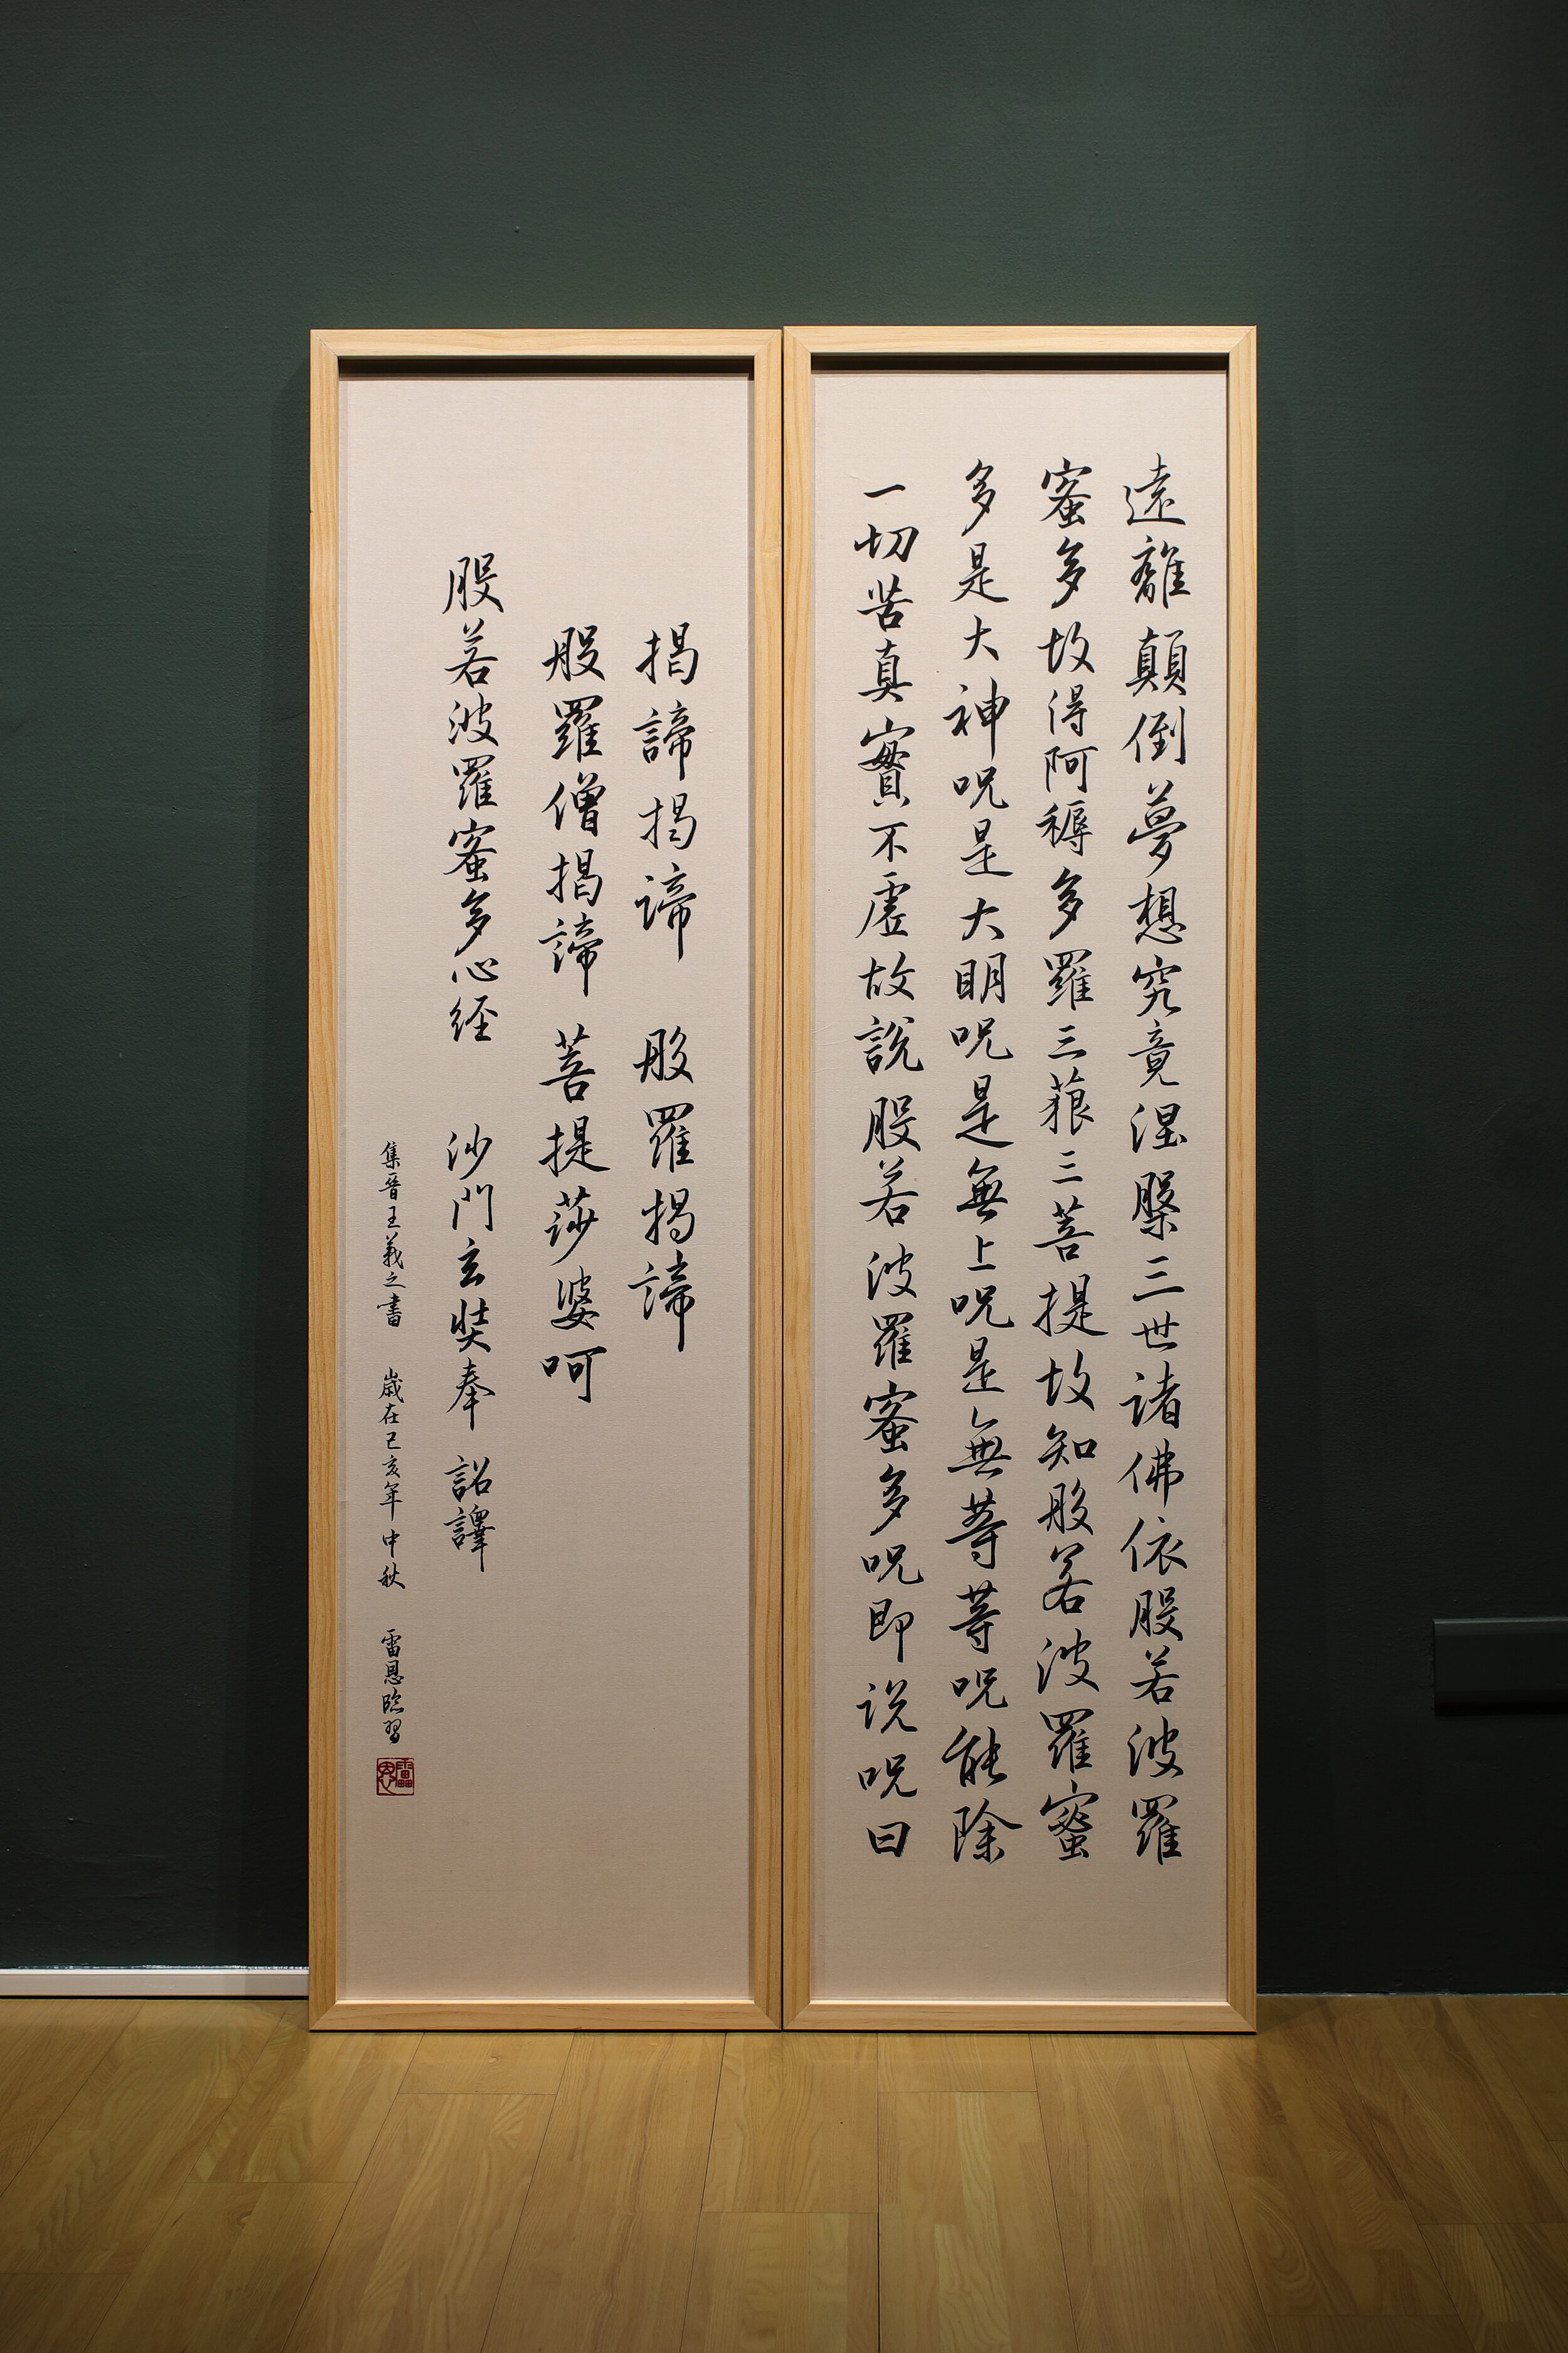 遠離顛倒夢想究竟涅槃三世諸佛依般若波羅
蜜多故得阿耨多羅三藐三菩提故知般若波羅蜜
多是大神咒是大明咒是無上咒是無等等咒能除
一切苦真實不虛故說般若波羅蜜多咒即說咒曰
揭諦揭諦 般羅揭諦
般羅僧揭諦 菩提莎婆呵
般若波羅蜜多心経 沙門玄奘奉 詔譯
集晉王羲之書 歲在己亥年 中秋 雷恩臨習
雷恩